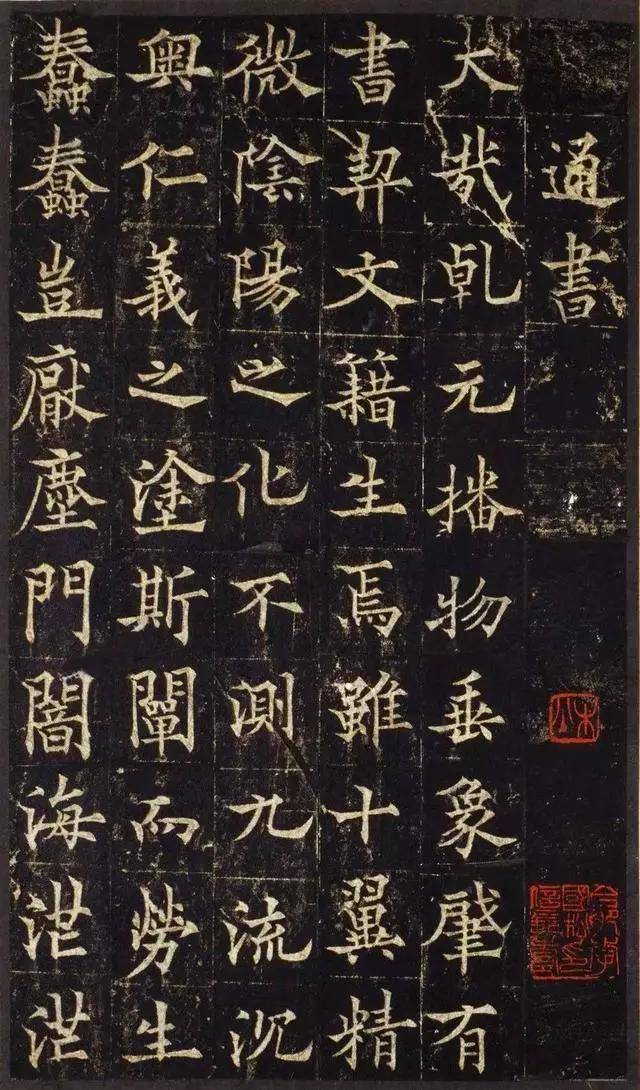 通書
大哉乹元播物垂象肇有
書契文籍生焉雖十翼精
微陰陽之化不測九流沉
奥仁義之塗斯闡而勞生
蠢蠢豈厭塵門闇海茫茫